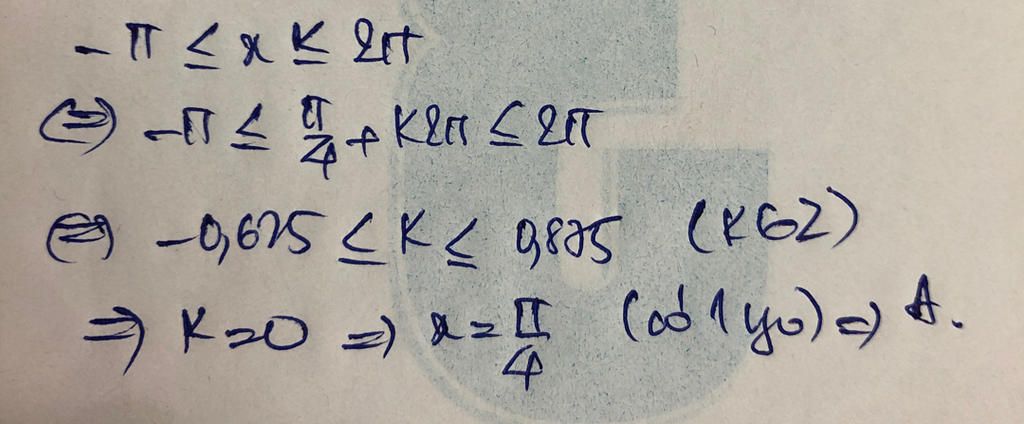 -π ≤ x ≤ 2π
⇔ -π ≤ π/4 + k2π ≤ 2π
⇔ -0,625 ≤ k ≤ 0,875 (k∈Z)
⇒ k=0 ⇒ x = π/4 (có 1 ng0) ⇒ A.